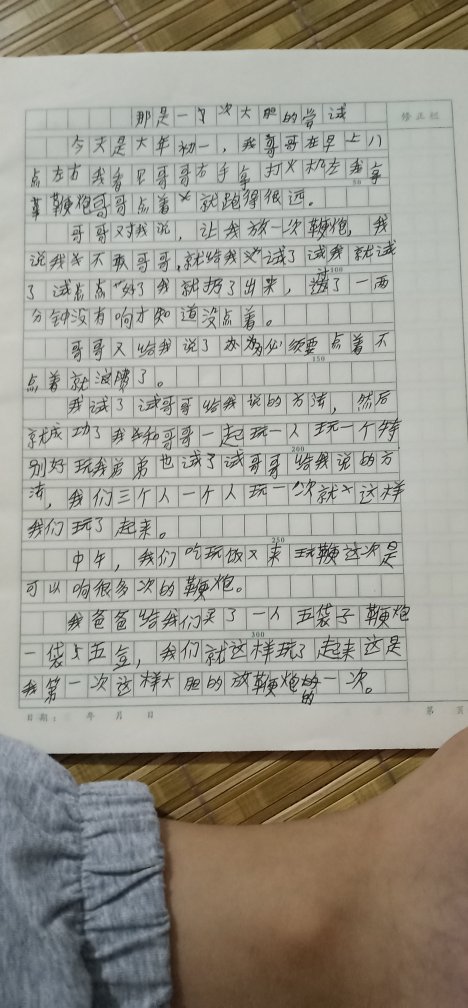 那是一次大胆的尝试
修正栏
今天是大年初一，我哥哥在早上八
点左右我看见哥哥右手拿打火机左我拿
鞭炮哥哥点着就跑得很远。
50
哥哥对我说，让我放一次鞭炮，我
说我不敢哥哥，就给我试了试我就试
100
了试点点好了我就扔了出来，过了一两
分钟没有响才知道没点着。
哥哥又给我说了办必须要点着不
150
点着就浪费了。
我试了试哥哥给我说的方法，然后
就成功了我和哥哥一起玩一人玩一个特
别好玩我弟弟也试了试哥哥给我说的方
200
法，我们三个人一个人玩一次就这样
我们玩了起来。
250
中午，我们吃玩饭又来玩鞭这次是
可以响很多次的鞭炮。
我爸爸给我们买了一人五袋子鞭炮
300
一袋五盒，我们就这样玩了起来这是
我第一次这样大胆的放鞭炮的一次。
日期： 年 月 日
第 页